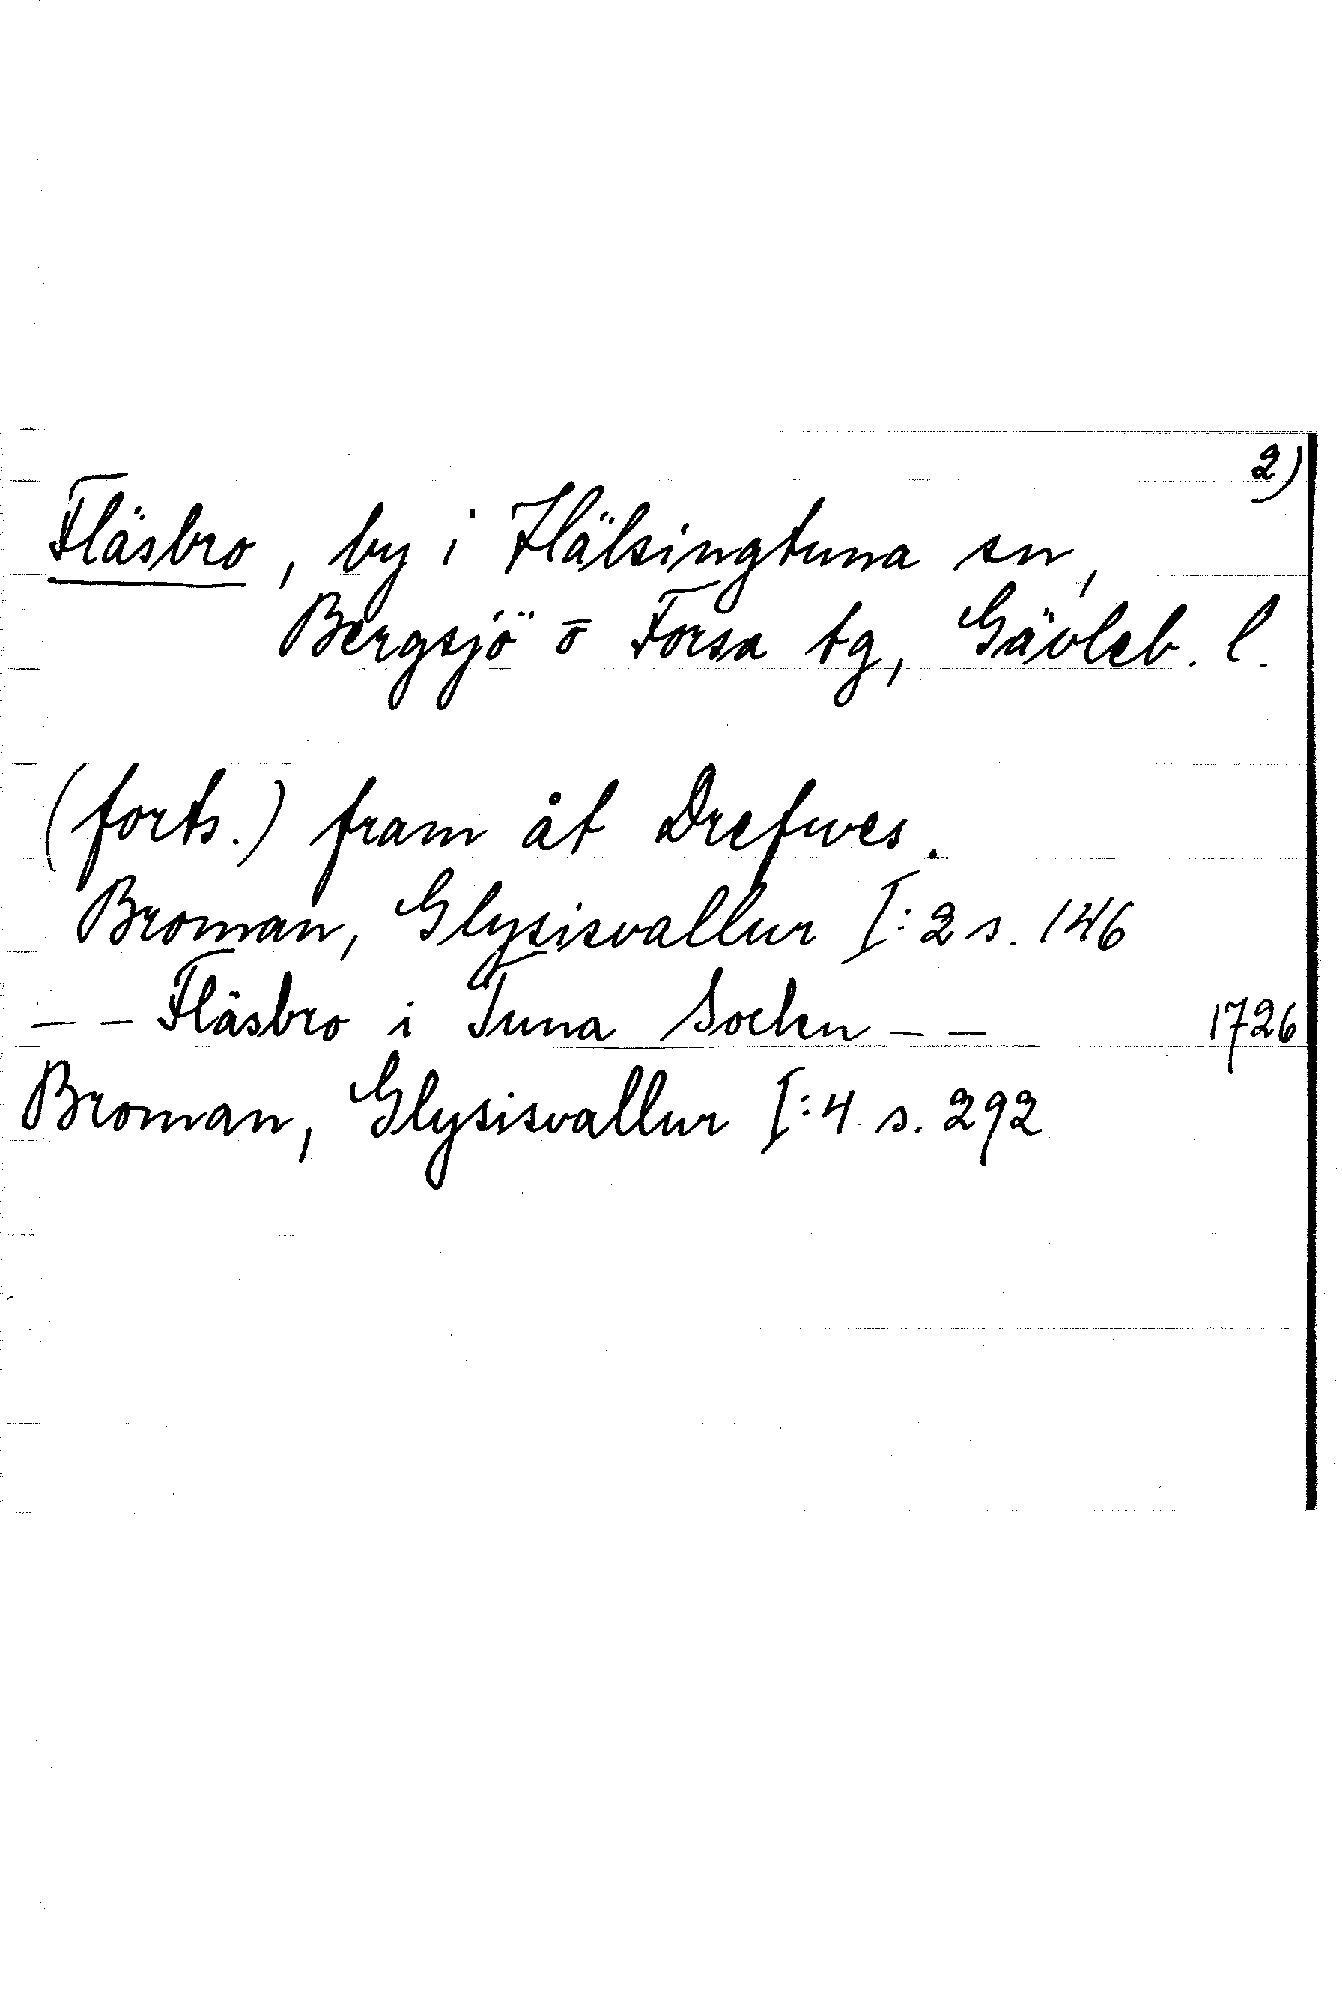 2)
Fläsbro, by i Hälsingtuna sn,
Bergsjö o Forsa tg, Gävleb. l.
(forts.) fram åt Drefwes.
Broman, Glysisvallur I:2 s. 146
– – Fläsbro i Tuna Socken – – 1726
Broman, Glysisvallur I:4 s. 292